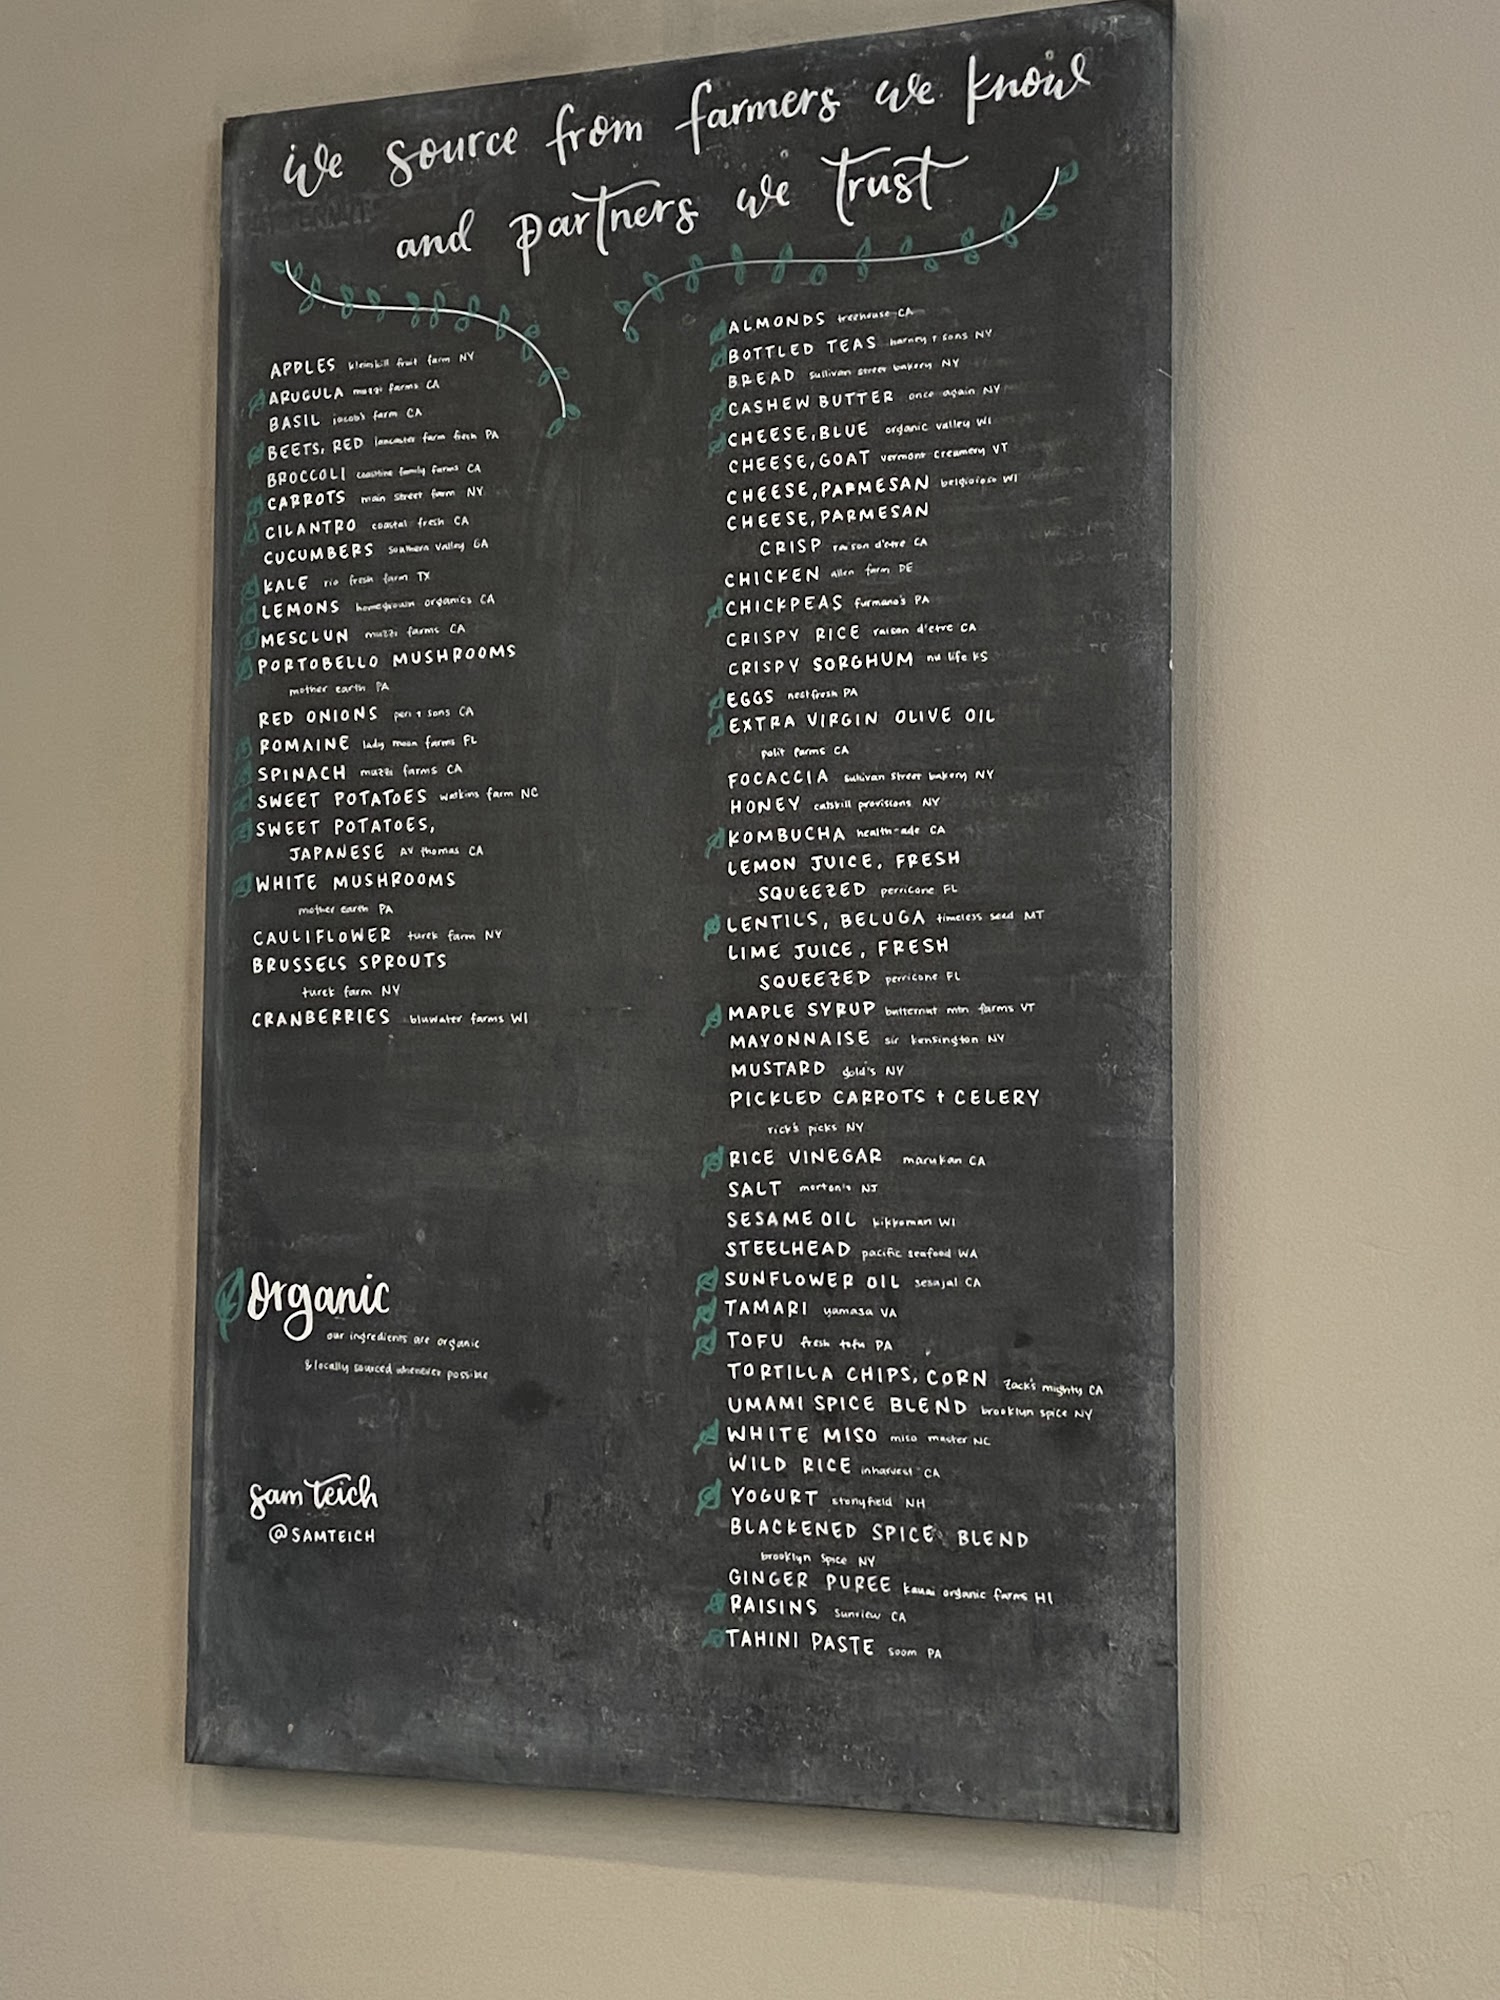 we source from farmers we know
and partners we trust
APPLES kleinskill fruit farm NY
ARUGULA muzzi farms CA
BASIL jacob's farm CA
BEETS, RED lancaster farm fresh PA
BROCCOLI coastline family farms CA
CARROTS main street farm NY
CILANTRO coastal fresh CA
CUCUMBERS Southern Valley GA
KALE rio fresh farm TX
LEMONS homegrown organics CA
MESCLUN muzzi farms CA
PORTOBELLO MUSHROOMS
mother earth PA
RED ONIONS peri + sons CA
ROMAINE lady moon farms FL
SPINACH muzzi farms CA
SWEET POTATOES watkins farm NC
SWEET POTATOES,
JAPANESE AV thomas CA
WHITE MUSHROOMS
mother earth PA
CAULIFLOWER turek farm NY
BRUSSELS SPROUTS
turek farm NY
CRANBERRIES bluwater farms WI
Organic
our ingredients are organic
& locally sourced whenever possible
sam teich
@SAMTEICH
ALMONDS treehouse CA
BOTTLED TEAS harney + sons NY
BREAD sullivan street bakery NY
CASHEW BUTTER once again NY
CHEESE, BLUE organic valley WI
CHEESE, GOAT vermont creamery VT
CHEESE, PARMESAN belgioioso WI
CHEESE, PARMESAN
CRISP raison d'etre CA
CHICKEN allen farm DE
CHICKPEAS furmano's PA
CRISPY RICE raison d'etre CA
CRISPY SORGHUM nu life KS
EGGS nestfresh PA
EXTRA VIRGIN OLIVE OIL
polit farms CA
FOCACCIA sullivan street bakery NY
HONEY catskill provisions NY
KOMBUCHA health-ade CA
LEMON JUICE, FRESH
SQUEEZED perricone FL
LENTILS, BELUGA timeless seed MT
LIME JUICE, FRESH
SQUEEZED perricone FL
MAPLE SYRUP butternut mtn farms VT
MAYONNAISE sir kensington NY
MUSTARD gold's NY
PICKLED CARROTS + CELERY
rick's picks NY
RICE VINEGAR marukan CA
SALT morton's NJ
SESAME OIL kikkoman WI
STEELHEAD pacific seafood WA
SUNFLOWER OIL sesajal CA
TAMARI yamasa VA
TOFU fresh tofu PA
TORTILLA CHIPS, CORN Zack's mighty CA
UMAMI SPICE BLEND brooklyn spice NY
WHITE MISO miso master NC
WILD RICE inharvest CA
YOGURT stonyfield NH
BLACKENED SPICE BLEND
brooklyn Spice NY
GINGER PUREE kauai organic farms HI
RAISINS Sunview CA
TAHINI PASTE Soom PA